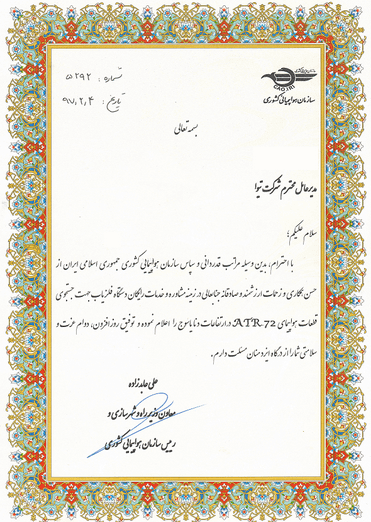 شماره : ۵۲۹۲
تاریخ : ۹۷,۲,۴
CAO.IRI
سازمان هواپیمائی کشوری
بسمه تعالی
مدیرعامل محترم شرکت تیوا
سلام علیکم؛
با احترام، بدین وسیله مراتب قدردانی و سپاس سازمان هواپیمائی کشوری جمهوری اسلامی ایران از
حسن همکاری و زحمات ارزشمند و صادقانه جنابعالی در زمینه مشاوره و خدمات رایگان دستگاه فلزیاب جهت جستجوی
قطعات هواپیمای ATR 72 در ارتفاعات دنا یاسوج را اعلام نموده و توفیق روزافزون، دوام عزت و
سلامتی شما را از درگاه ایزد منان مسئلت دارم.
علی عابدزاده
معاون وزیر راه و شهرسازی و
رییس سازمان هواپیمائی کشوری